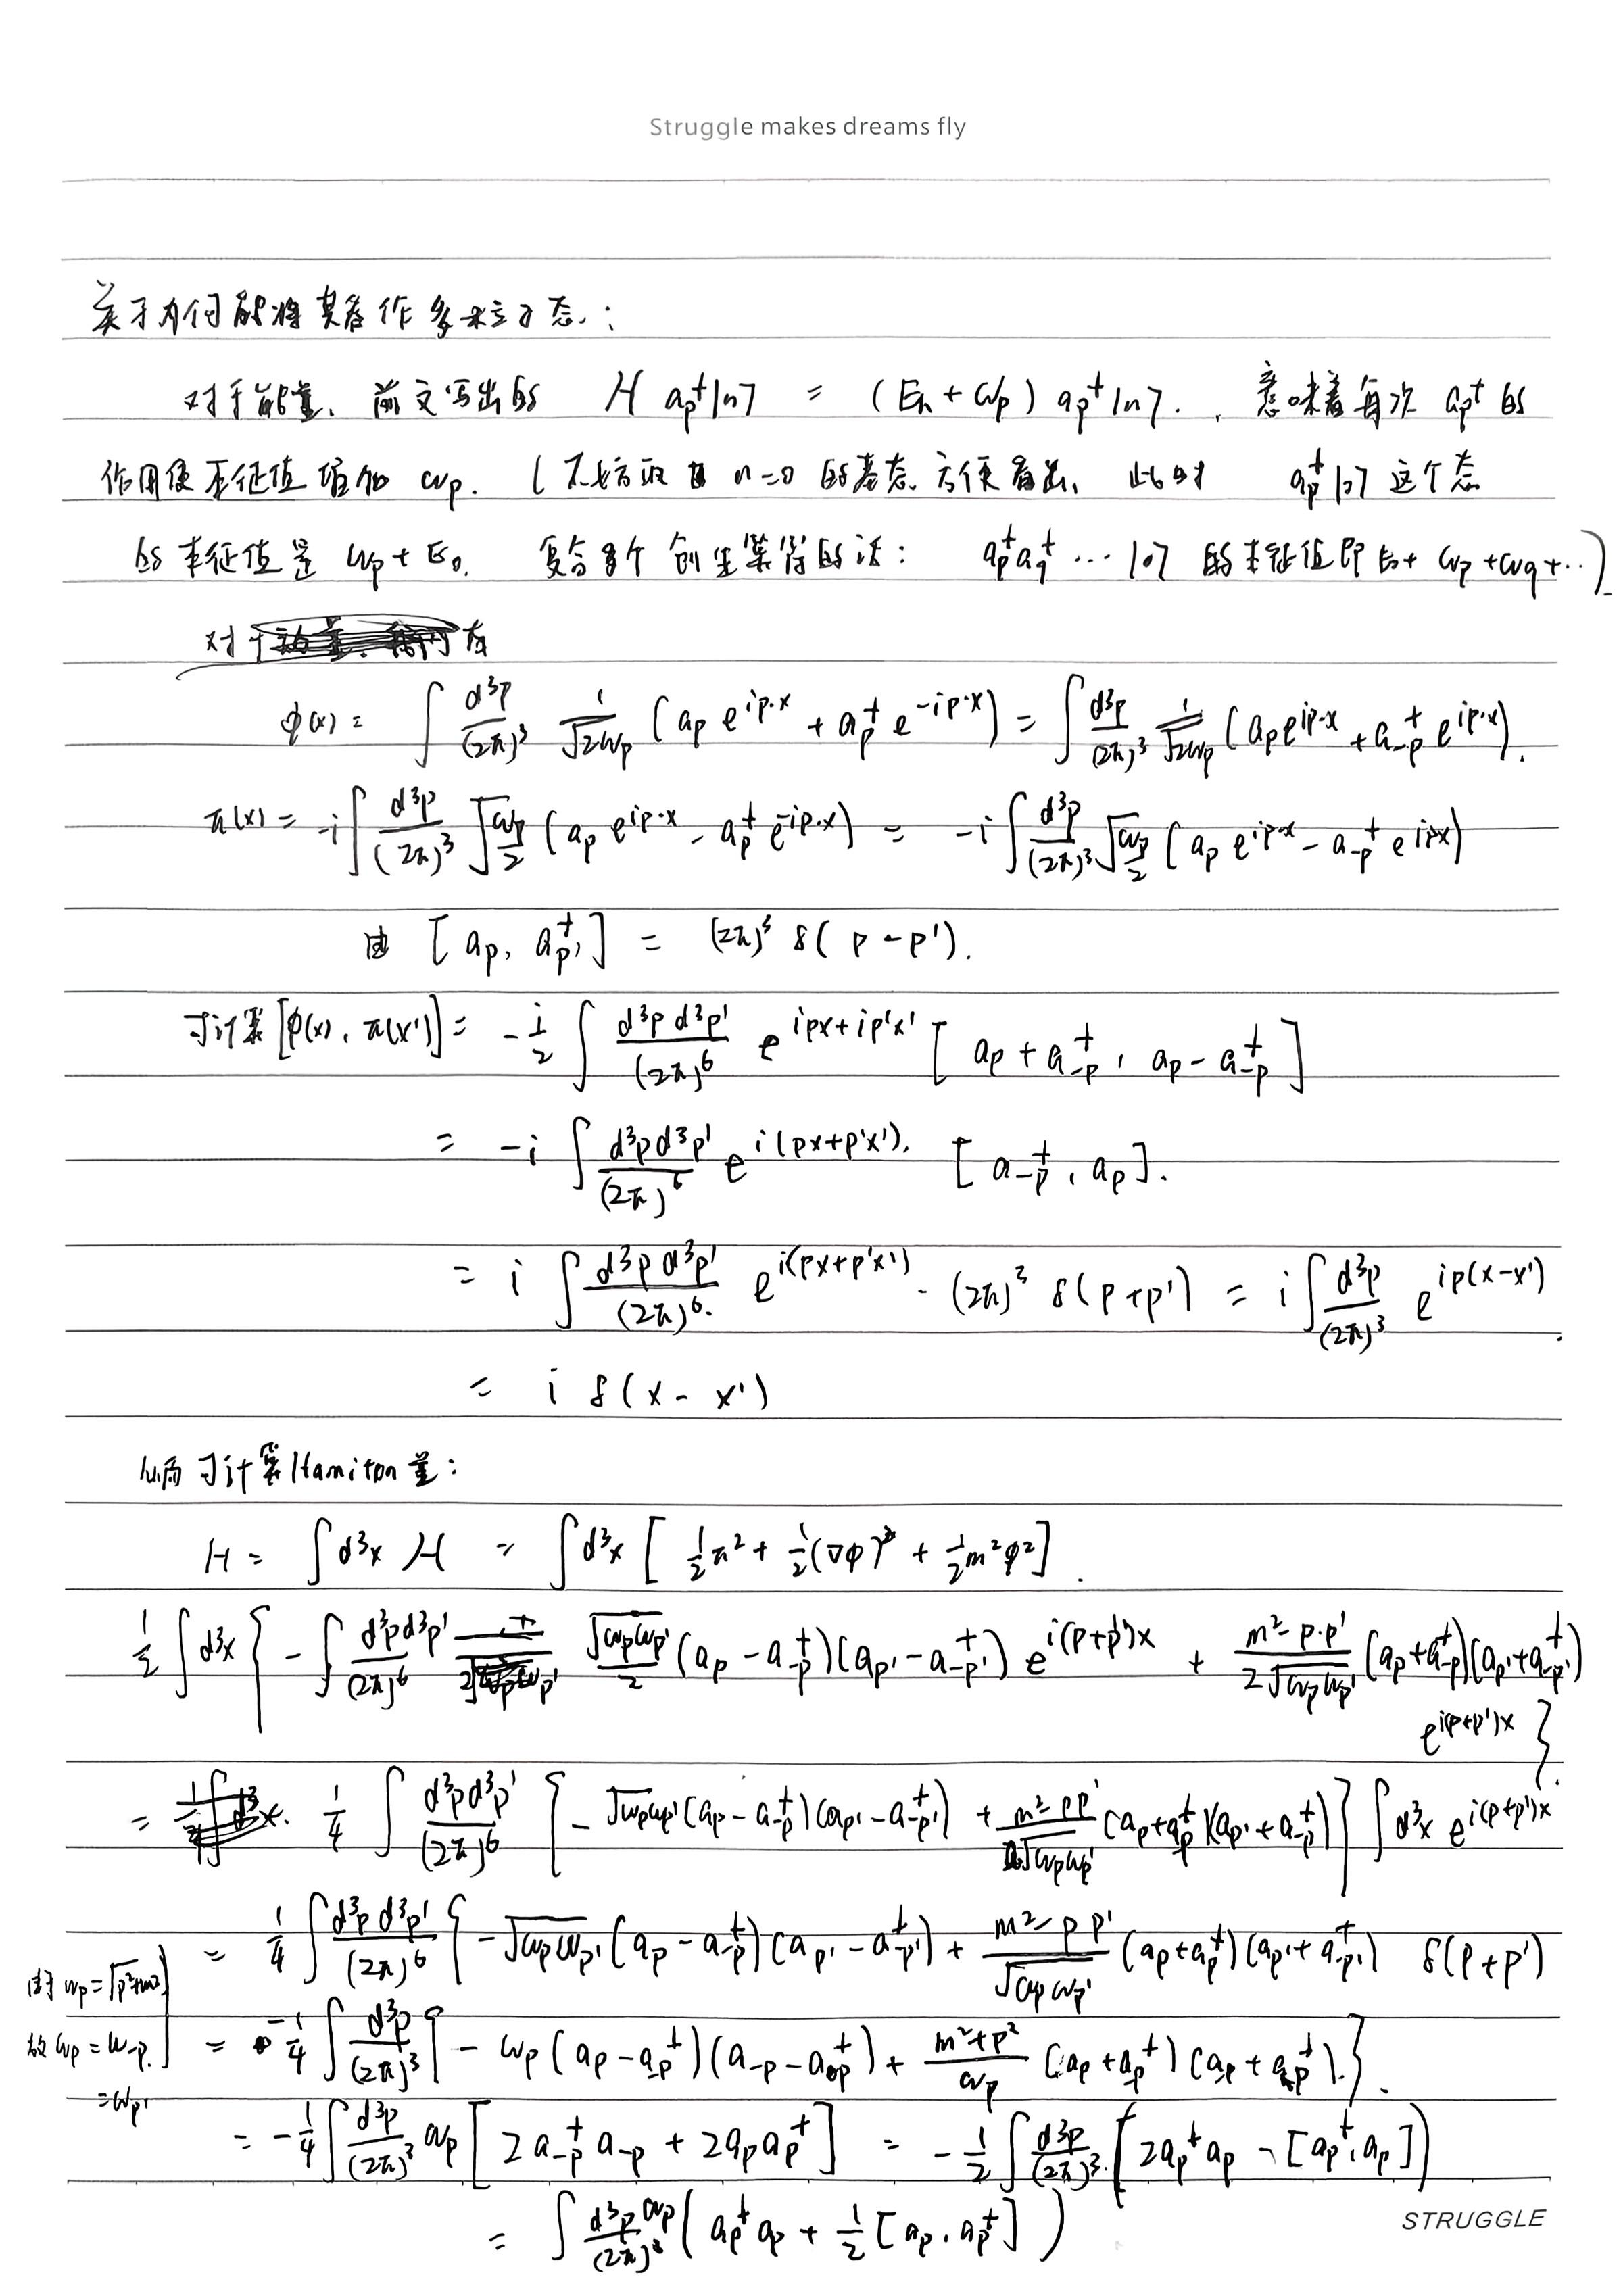 Struggle makes dreams fly
关于为何能将其看作多粒子态:
对于能量, 前文写出的 H a_p^† |n⟩ = (E_n + ω_p) a_p^† |n⟩. , 意味着每次 a_p^† 的
作用使本征值增加 ω_p. ( 不妨取 n=0 的基态方便看出, 此时 a_p^† |0⟩ 这个态
的本征值是 ω_p + E_0. 复合多个创生算符的话: a_p^† a_q^† ⋯ |0⟩ 的本征值即 E_0 + ω_p + ω_q + ⋯)
对于 有
φ(x) = ∫ d³p/(2π)³ 1/√(2ω_p) (a_p e^{ip·x} + a_p^† e^{-ip·x}) = ∫ d³p/(2π)³ 1/√(2ω_p) (a_p e^{ip·x} + a_{-p}^† e^{ip·x}).
π(x) = -i ∫ d³p/(2π)³ √(ω_p/2) (a_p e^{ip·x} - a_p^† e^{-ip·x}) = -i ∫ d³p/(2π)³ √(ω_p/2) (a_p e^{ip·x} - a_{-p}^† e^{ipx})
由 [a_p, a_{p'}^†] = (2π)³ δ(p - p').
可计算 [φ(x), π(x')] = -i/2 ∫ d³p d³p'/(2π)⁶ e^{ipx+ip'x'} [a_p + a_{-p}^†, a_p - a_{-p}^†]
= -i ∫ d³p d³p'/(2π)⁶ e^{i(px+p'x')}. [a_{-p}^†, a_p].
= i ∫ d³p d³p'/(2π)⁶. e^{i(px+p'x')} · (2π)³ δ(p+p') = i ∫ d³p/(2π)³ e^{ip(x-x')}.
= i δ(x - x')
从而可计算Hamiton量:
H = ∫d³x ℋ = ∫d³x [½π² + ½(∇φ)² + ½m²φ²].
½ ∫d³x { - ∫ d³p d³p'/(2π)⁶ √(ω_pω_{p'})/2 (a_p - a_{-p}^†)(a_{p'} - a_{-p'}^†) e^{i(p+p')x} + (m² - p·p')/(2√(ω_pω_{p'})) (a_p + a_{-p}^†)(a_{p'} + a_{-p'}^†)
e^{i(p+p')x} }.
= ¼ ∫ d³p d³p'/(2π)⁶ { -√(ω_pω_{p'}) (a_p - a_{-p}^†)(a_{p'} - a_{-p'}^†) + (m² - pp')/√(ω_pω_{p'}) (a_p + a_p^†)(a_{p'} + a_{-p}^†) } ∫d³x e^{i(p+p')x}
= ¼ ∫ d³p d³p'/(2π)⁶ { -√(ω_pω_{p'}) (a_p - a_{-p}^†)(a_{p'} - a_{-p'}^†) + (m² - p p')/√(ω_pω_{p'}) (a_p + a_p^†)(a_{p'} + a_{-p'}^†) δ(p+p')
由于 ω_p = √(p²+m²)
故 ω_p = ω_{-p}.
= ω_{p'}
= -¼ ∫ d³p/(2π)³ { - ω_p (a_p - a_{-p}^†)(a_{-p} - a_p^†) + (m²+p²)/ω_p (a_p + a_{-p}^†)(a_{-p} + a_p^†). }.
= -¼ ∫ d³p/(2π)³ ω_p [2a_{-p}^† a_{-p} + 2a_p a_p^†] = -½ ∫ d³p/(2π)³. (2a_p^† a_p - [a_p^†, a_p])
= ∫ d³p/(2π)³ ω_p (a_p^† a_p + ½ [a_p, a_p^†])
STRUGGLE